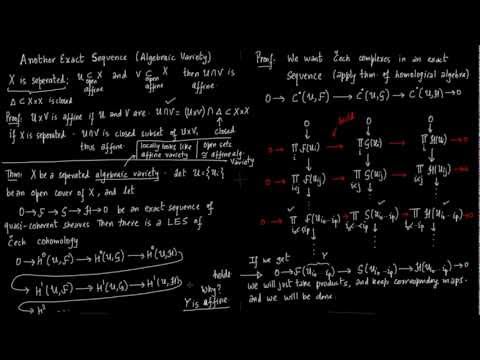 Another Exact Sequence (Algebraic Variety)
X is separated; U ⊂ X and V ⊂ X then U∩V is
open open
affine affine affine
Δ ⊂ X×X is closed
Proof: U×V is affine if U and V are. U∩V = (U×V) ∩ Δ ⊂ X×X
closed
if X is separated. U∩V is closed subset of U×V,
thus affine.
locally looks like affine variety
open sets ≅ affine alg. variety
Thm: X be a separated algebraic variety. Let U = {Ui}
be an open cover of X, and let
0→F→G→H→0 be an exact sequence of
quasi-coherent sheaves. Then there is a LES of
Čech cohomology
0→H⁰(U,F)→H⁰(U,G)→H⁰(U,H)
H¹(U,F)→H¹(U,G)→H¹(U,H)
→H² ...
holds
Why?
Y is affine
Proof: We want Čech complexes in an exact
sequence (apply thm. of homological algebra)
0→C˙(U,F)→C˙(U,G)→C˙(U,H)→0
holds
0 0 0
0→∏F(Ui)→∏G(Ui)→∏H(Ui)→0
i i i
0→∏F(Uij)→∏G(Uij)→∏H(Uij)→0
i<j i<j i<j
0→∏F(Ui₀...ip)→∏G(Ui₀...ip)→∏H(Ui₀...ip)→0
i₀<...<ip i₀<...<ip i₀<...<ip
If we get Y
0→F(Ui₀...ip)→G(Ui₀...ip)→H(Ui₀...ip)→0
we will just take products, and keep corresponding maps
and we will be done.